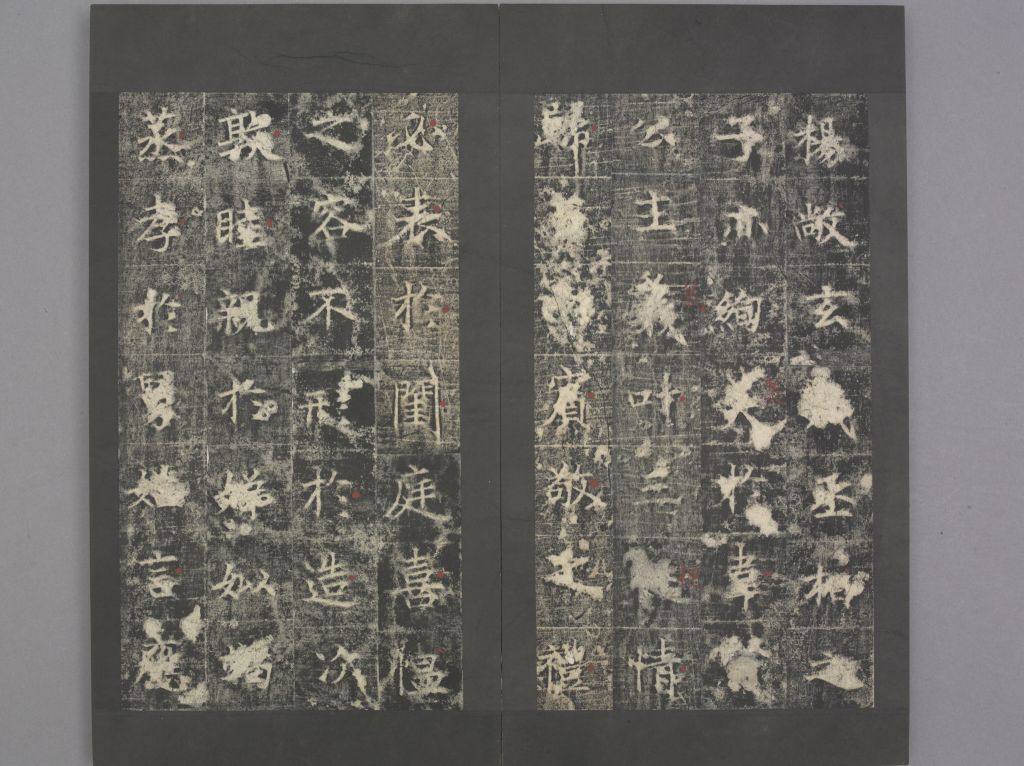 楊敞玄丞相
子亦絢於韋
公主義叶三情
歸賓敬之禮
必表於閨庭喜慍
之容不形於造次
敦睦親於娣姒
蒸孝於舅姑言